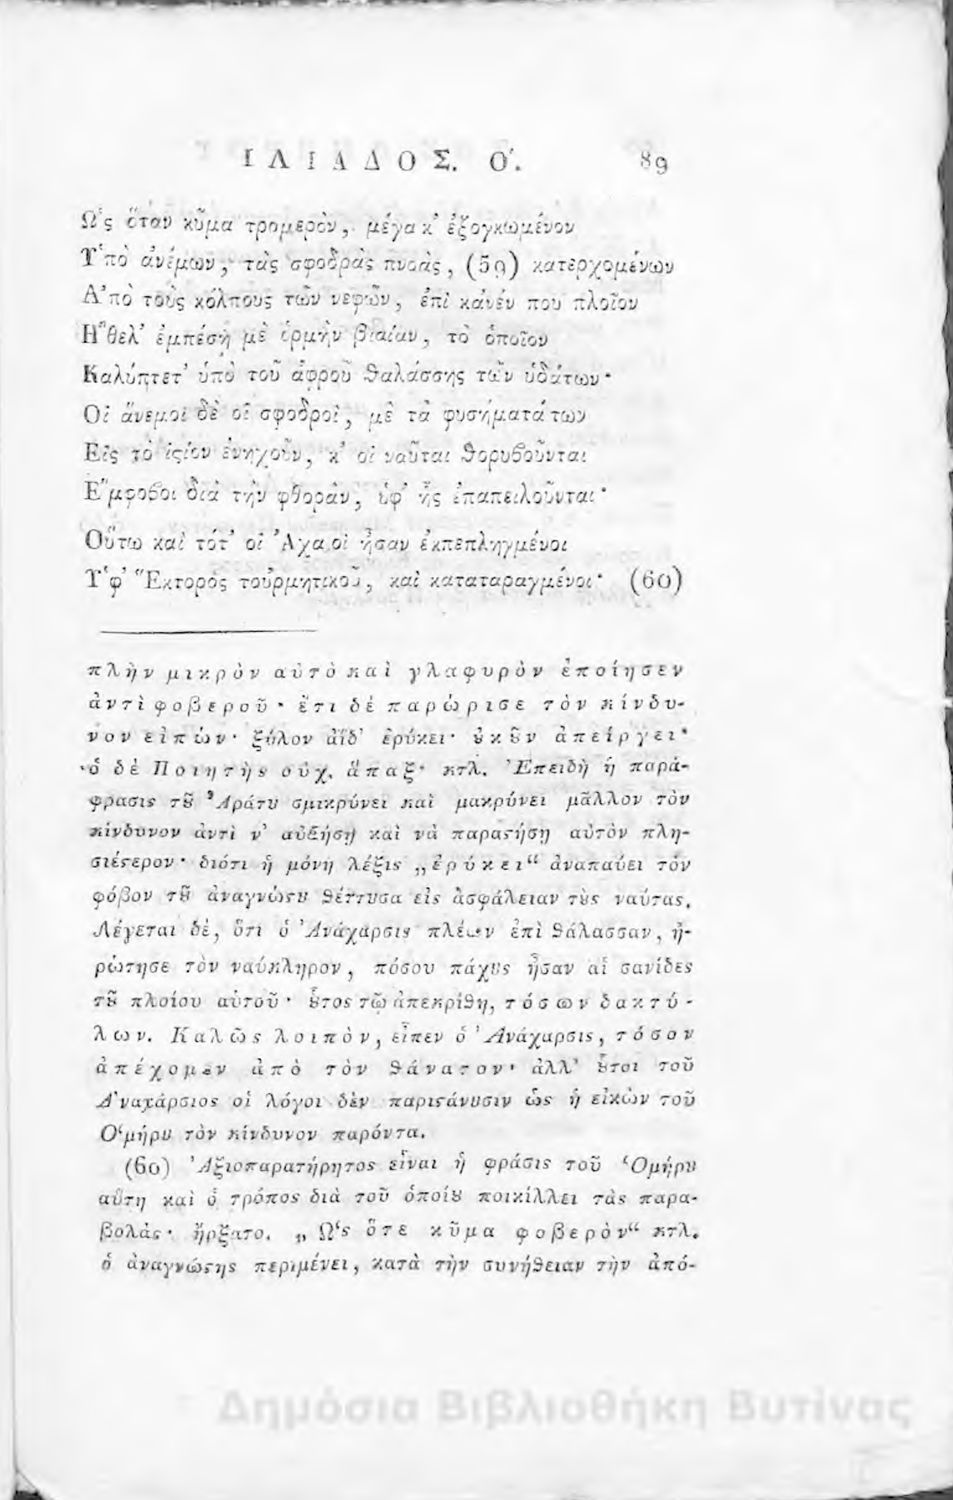 ΙΛΙΑΔΟΣ. Ο΄. 89
Ω῾ς ὅταν κῦμα τρομερὸν, μέγα κ᾽ ἐξογκωμένον
Υ῾πὸ ἀνέμων, τὰς σφοδρὰς πνοὰς, (59) κατερχομένων
Α᾽πὸ τοὺς κόλπους τῶν νεφῶν, ἐπὶ κᾀνέν που πλοῖον
Η῎θελ᾽ ἐμπέσῃ μὲ ὁρμὴν βιαίαν, τὸ ὁποῖον
Καλύπτετ᾽ ὑπὸ τοῦ ἀφροῦ ϑαλάσσης τῶν ὑδάτων·
Οἱ ἄνεμοι δὲ οἱ σφοδροὶ, μὲ τὰ φυσήματάτων
Εἰς τὸ ἱϛίον ἐνηχοῦν, κ᾽ οἱ ναῦται ϑορυβοῦνται
Ε῎μφοβοι διὰ τὴν φθορὰν, ὑφ᾽ ἧς ἐπαπειλοῦνται·
Οὕτω καὶ τότ᾽ οἱ Ἀχαιοὶ ἦσαν ἐκπεπληγμένοι
Υ῾φ᾽ Ἕκτορὸς τοὐρμητικοῦ, καὶ καταταραγμένοι· (60)
πλὴν μικρὸν αὐτὸ καὶ γλαφυρὸν ἐποίησεν
ἀντὶ φοβεροῦ· ἔτι δὲ παρώρισε τὸν κίνδυ-
νον εἰπών· ξύλον ἀΐδ᾽ ἐρύκει· ȣ̓κȣ͂ν ἀπείργει·
ὁ δὲ Ποιητὴς οὐχ ἅπαξ· κτλ. Ἐπειδὴ ἡ παρά-
φρασις τȣ͂ Ἀράτȣ σμικρύνει καὶ μακρύνει μᾶλλον τὸν
κίνδυνον ἀντὶ ν᾽ αὐξήσῃ καὶ νὰ παραϛήσῃ αὐτὸν πλη-
σιέϛερον· διότι ἡ μόνη λέξις „ἐρύκει“ ἀναπαύει τὸν
φόβον τȣ͂ ἀναγνώϛȣ ϑέττȣσα εἰς ἀσφάλειαν τȣ̀ς ναύτας.
Λέγεται δὲ, ὅτι ὁ Ἀνάχαρσις πλέων ἐπὶ ϑάλασσαν, ἠ-
ρώτησε τὸν ναύκληρον, πόσον πάχȣς ἦσαν αἱ σανίδες
τȣ͂ πλοίου αὐτοῦ· ȣ̔͂τος τῷ ἀπεκρίϑη, τόσων δακτύ-
λων. Καλῶς λοιπὸν, εἶπεν ὁ Ἀνάχαρσις, τόσον
ἀπέχομεν ἀπὸ τὸν ϑάνατον· ἀλλ᾽ ȣ̔͂τοι τοῦ
Α᾽ναχάρσιος οἱ λόγοι δὲν παριϛάνȣσιν ὡς ἡ εἰκὼν τοῦ
Ο῾μήρȣ τὸν κίνδυνον παρόντα.
(60) Ἀξιοπαρατήρητος εἶναι ἡ φράσις τοῦ Ὁμήρȣ
αὕτη καὶ ὁ τρόπος διὰ τοῦ ὁποίȣ ποικίλλει τὰς παρα-
βολάς· ἤρξατο. „Ω῾ς ὅτε κῦμα φοβερὸν“ κτλ.
ὁ ἀναγνώϛης περιμένει, κατὰ τὴν συνήϑειαν τὴν ἀπό-
Δημόσια Βιβλιοθήκη Βυτίνας